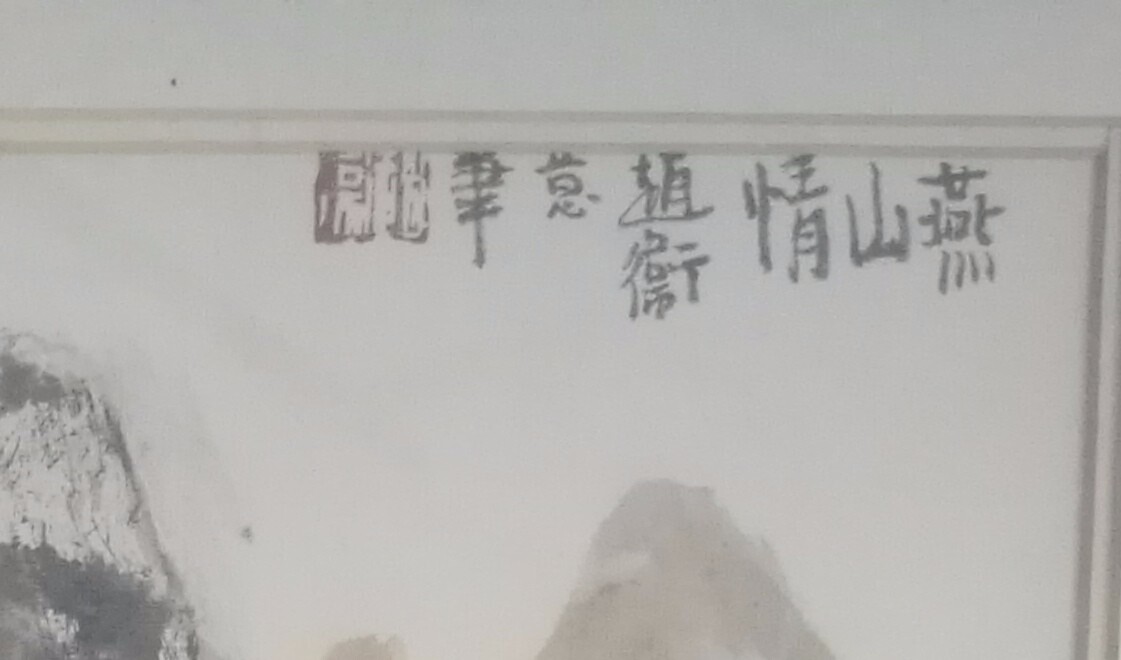 燕山情
趙衞
意
筆